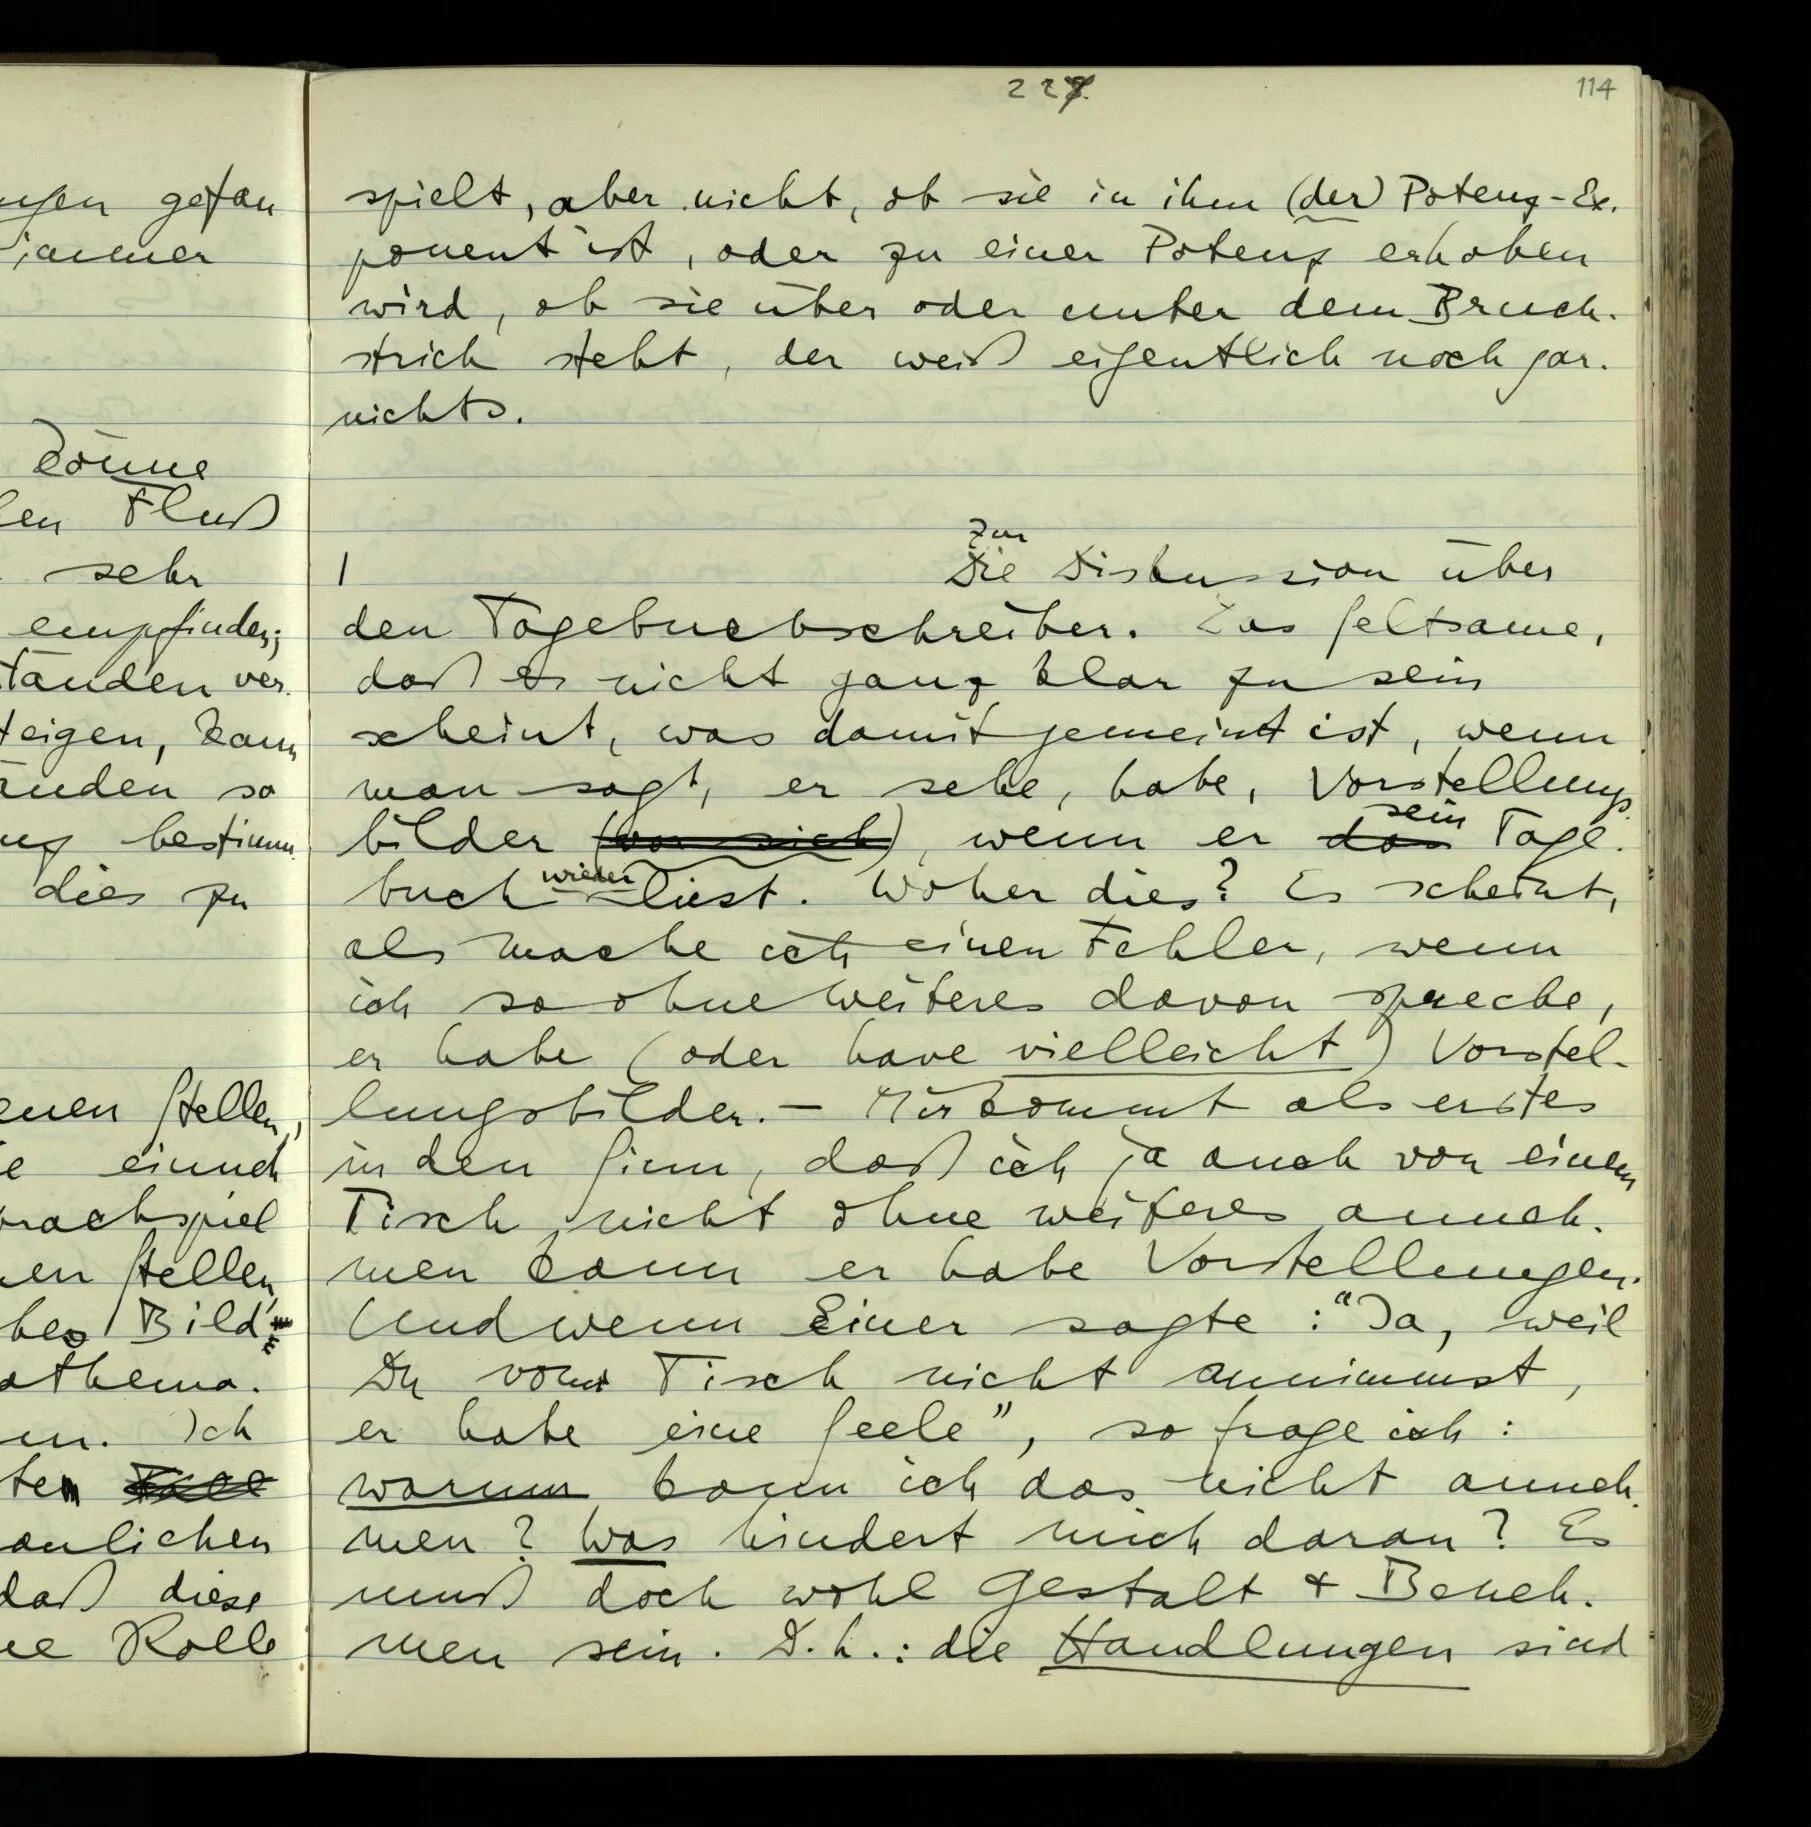 227.
114
ngen gefan
immer
Dönne
len Fluß
sehr
empfinden;
ständen ver-
teigen, kann
änden so
ng bestimm-
dies zu
enen Stellen,
e einneh
prachspiel
en Stellen,
hes Bild
athema-
en. Ich
ten
anlichen
daß diese
ne Rolle
spielt, aber nicht, ob sie in ihm (der) Potenz-Ex-
ponent ist, oder zu einer Potenz erhoben
wird, ob sie über oder unter dem Bruch-
strich steht, der weiß eigentlich noch gar-
nichts.
Zur
| Die Diskussion über
den Tagebuchschreiber. Das Seltsame,
daß es nicht ganz klar zu sein
scheint, was damit gemeint ist, wenn
man sagt, er sehe, habe, Vorstellungs-
sein
bilder (vor sich), wenn er das Tage-
wieder
buch liest. Woher dies? Es scheint,
als mache ich einen Fehler, wenn
ich so ohne weiteres davon spreche,
er habe (oder have vielleicht) Vorstel-
lungsbilder. – Mir kommt als erstes
in den Sinn, daß ich ja auch von einem
Tisch nicht ohne weiteres anneh-
men kann er habe Vorstellungen.
Und wenn Einer sagte: "Ja, weil
Du vom Tisch nicht annimmst,
er habe eine Seele", so frage ich:
warum kann ich das nicht anneh-
men? Was hindert mich daran? Es
muß doch wohl Gestalt & Beneh-
men sein. D.h.: die Handlungen sind